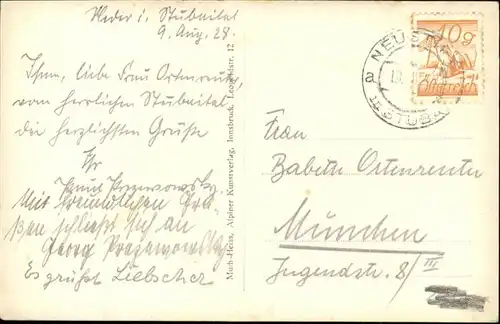 Neder i. Stubaital
9. Aug. 28.
Ihnen, liebe Frau Ortenreuter,
vom herrlichen Stubaital
die herzlichsten Grüße
Ihr
Mit freundlichen Grü-
ßen schließt sich an
Georg
Es grüßt Liebscher
Muth-Heiss, Alpiner Kunstverlag, Innsbruck, Leopoldstr. 12
10g
Österreich
NEUST
a
STUBA
Frau
Babette Ortenreuter
München
Jugendstr. 8/III